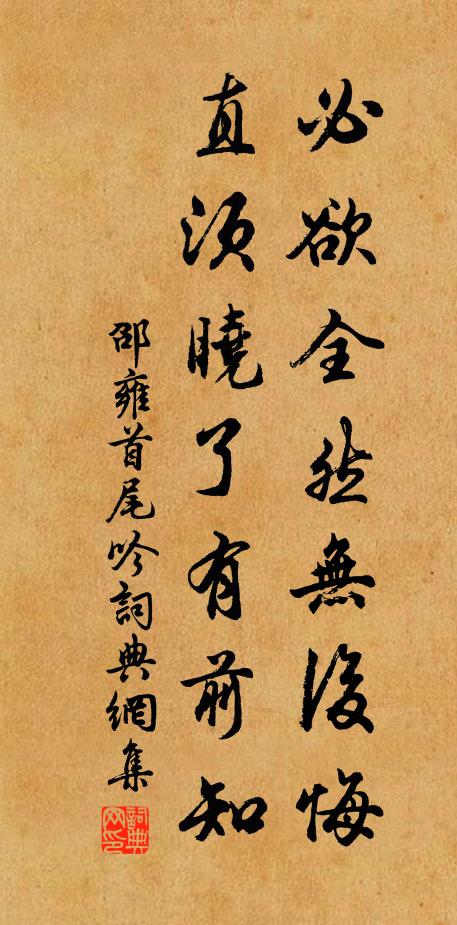 必欲全然無後悔
直須曉了有前知
邵雍首尾吟詞典網集
詞典網印